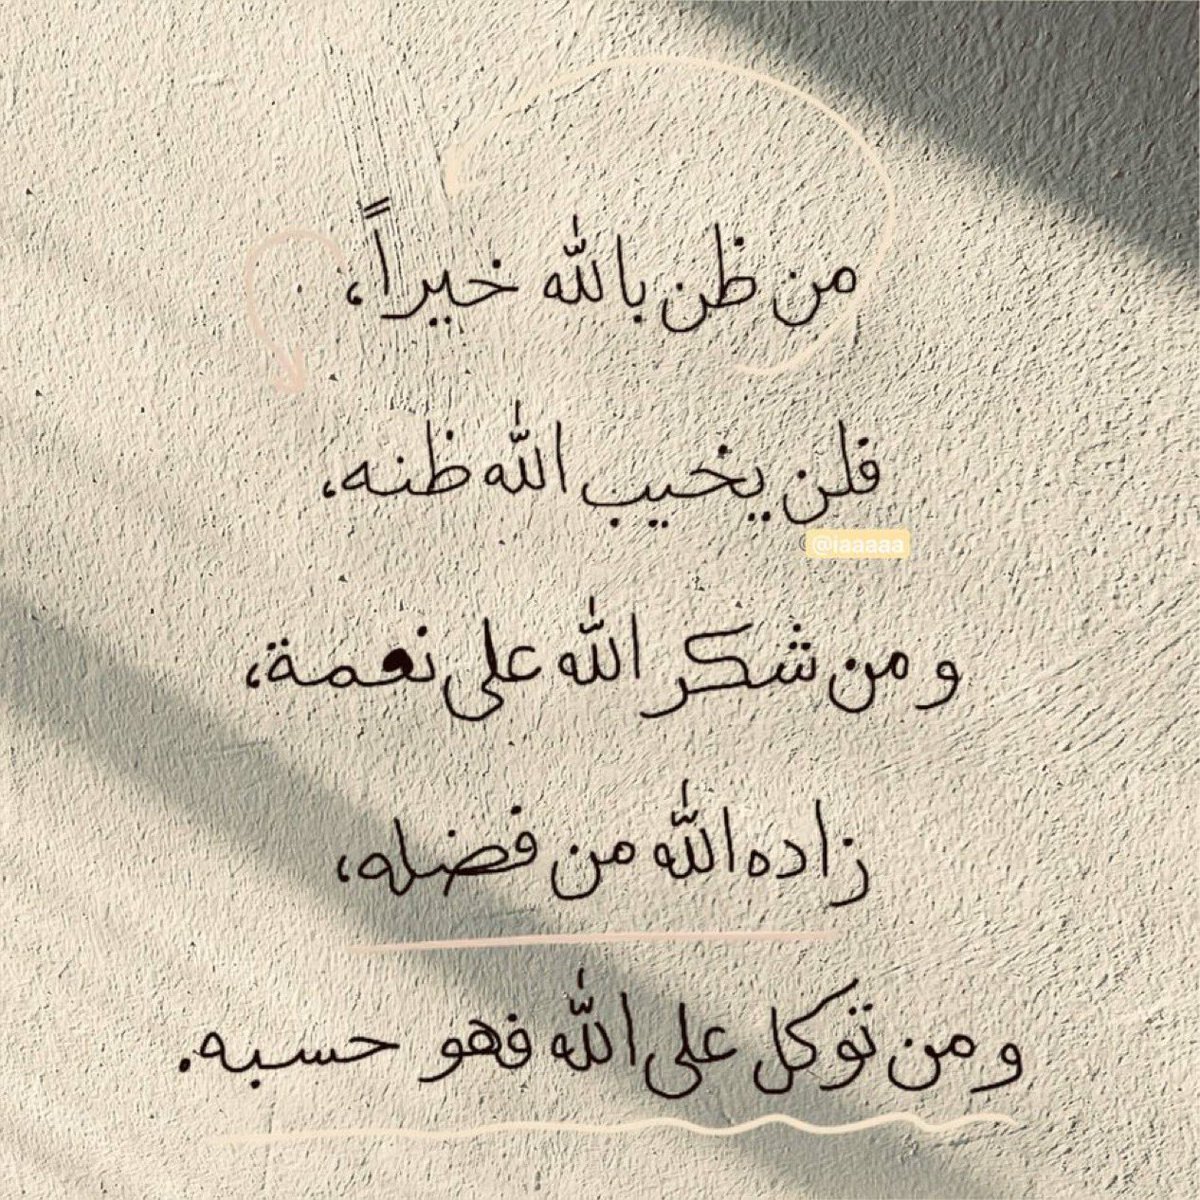 من ظن بالله خيراً،
فلن يخيب الله ظنه،
@iaaaaa
ومن شكر الله على نعمة،
زاده الله من فضله،
ومن توكل على الله فهو حسبه.